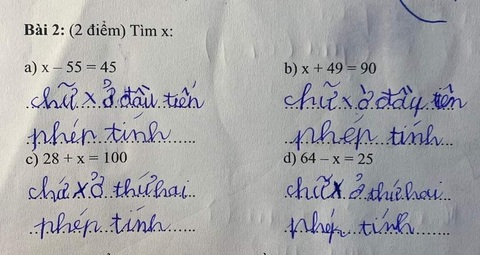 Bài 2: (2 điểm) Tìm x:
a) x – 55 = 45
chữ x ở đầu tiên
phép tính
b) x + 49 = 90
chữ x ở đầy tiên
phép tính
c) 28 + x = 100
chứ x ở thứ hai
phép tính
d) 64 – x = 25
chữ x ở thứ hai
phép tính